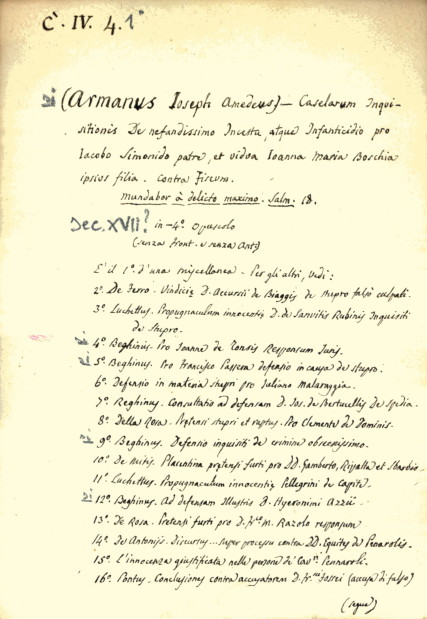 C. IV. 4. 1°
(Armanus Ioseph Amedeus) — Caselarum Inqui-
sitionis De nefandissimo Incestu, atque Infanticidio pro
Iacobo Simonido patre, et vidua Ioanna Maria Boschia
ipsius filia. Contra Fiscum.
mundabor à delicto maximo. Salm: 18.
Sec. XVII? in-4° opuscolo
(senza front. e senza Ant)
E' il 1° d'una miscellanea - Per gli altri, vedi:
2° De Ferro. Vindiciæ D. Accursii de Biaggis de stupro falsò culpati.
3° Luchettus. Propugnaculum innocentiæ D. de Sanvitis Rubinis Inquisiti
de stupro.
4° Beghinus. Pro Ioanne de Consis Responsum Iuris.
5° Beghinus. Pro Francisco Passera defensio in causa de stupro.
6° Defensio in materia stupri pro Iuliano Malaraggia.
7° Beghinus. Consultatio ad defensam D. Ios. de Bertucellis De Spedia.
8° Della Rosa. Prætensi stupri et raptus. Pro Clemente de Dominis.
9° Beghinus. Defensio inquisiti de crimine obscenissimo.
10° De Mitis. Placentina prætensi furti pro DD. Gamberto, Rissalla et
11° Luchettus. Propugnaculum innocentiæ Pellegrini de Caffis.
12° Beghinus. Ad defensam Illustris D. Hyeronimi Azzii.
13° De Rosa. Prætensi furti pro D. M. Razolo responsum
14° De Antoniis. Discursus... super processu contra DD. Equites de Pennarolis.
15° L'innocenza giustificata nelle persone de' Cav. Pennaroli.
16° Pontus. Conclusiones contra accusatorem D. Fossei (accusa di falso)
(segue)